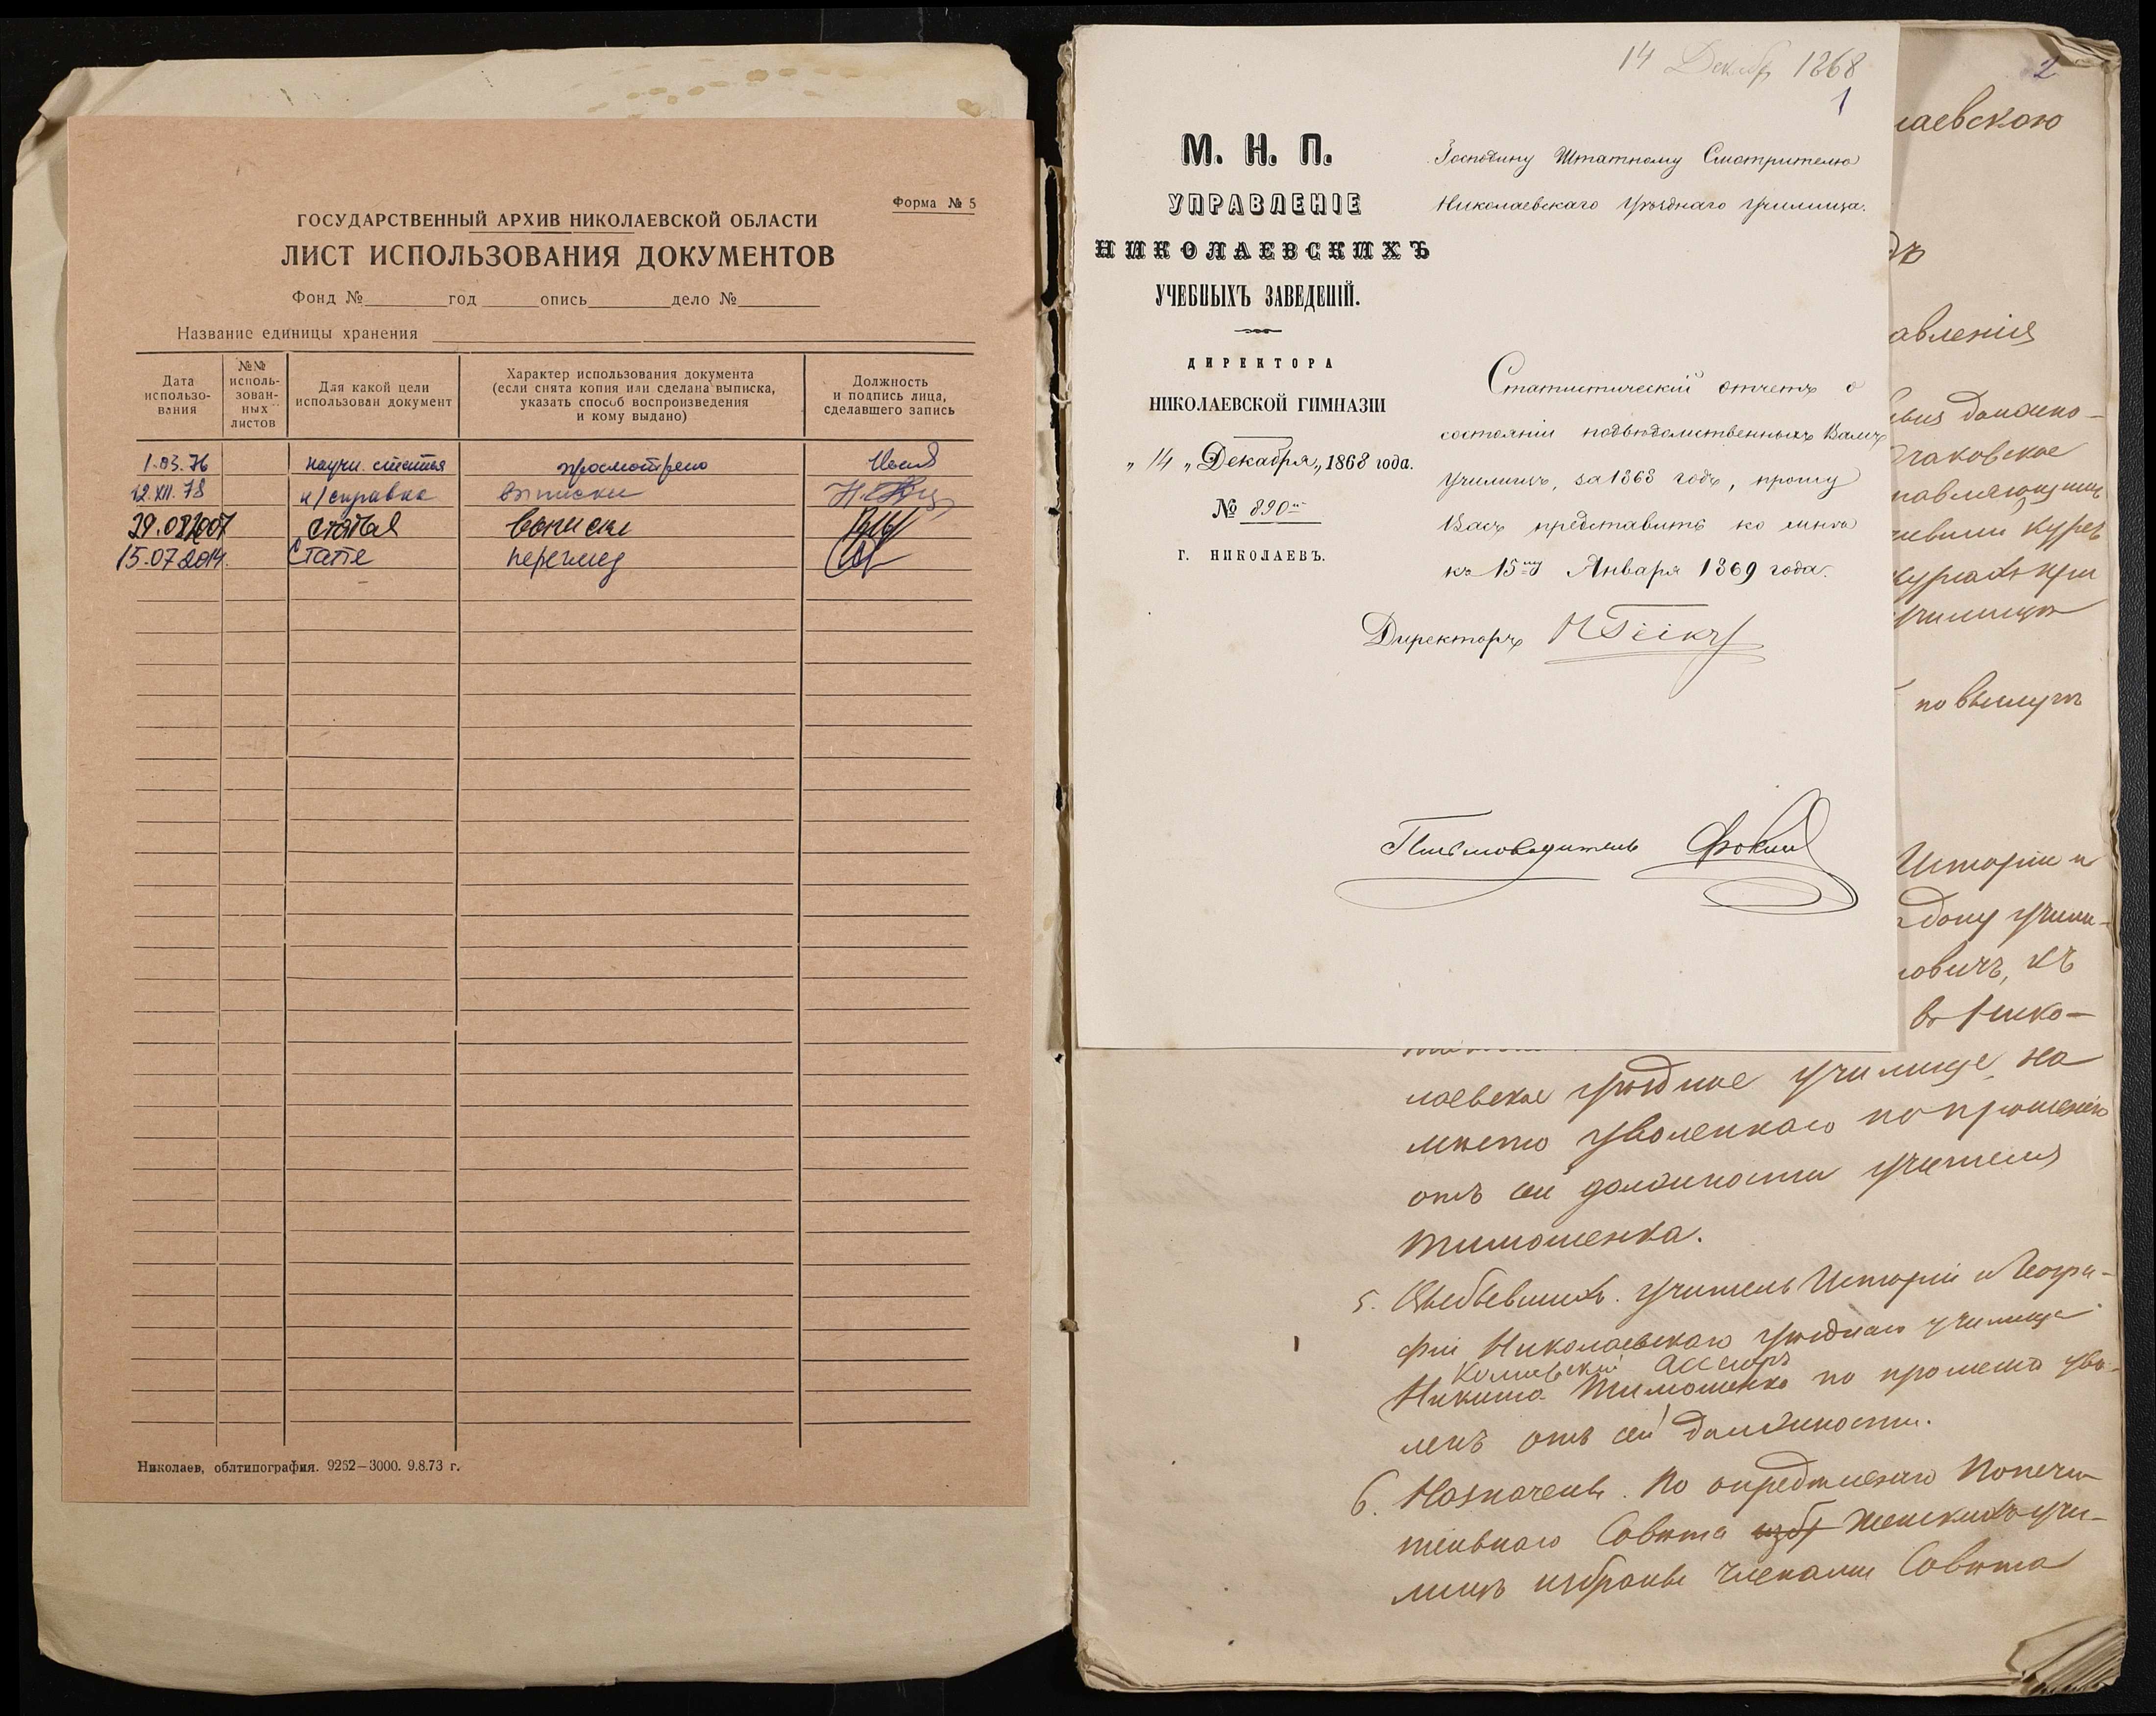 Форма № 5
ГОСУДАРСТВЕННЫЙ АРХИВ НИКОЛАЕВСКОЙ ОБЛАСТИ
ЛИСТ ИСПОЛЬЗОВАНИЯ ДОКУМЕНТОВ
Фонд № год опись дело №
Название единицы хранения
Дата использо-вания
№№ исполь-зован-ных листов
Для какой цели использован документ
Характер использования документа (если снята копия или сделана выписка, указать способ воспроизведения и кому выдано)
Должность и подпись лица, сделавшего запись
1.03.76 научн. статья просмотрено
12.XII.78 н/справка выписки
29.08.2007 статья выписки
15.07.2014. статья перегляд
Николаев, облтипография. 9262—3000. 9.8.73 г.
14 Декабр 1868
1
М. Н. П.
УПРАВЛЕНІЕ
НИКОЛАЕВСКИХЪ
УЧЕБНЫХЪ ЗАВЕДЕНІЙ.
ДИРЕКТОРА
НИКОЛАЕВСКОЙ ГИМНАЗІИ
„ 14 „ Декабря „ 1868 года.
№ 890
Г. НИКОЛАЕВЪ.
Господину Штатному Смотрителю
Николаевскаго уѣзднаго училища.
Статистическій отчетъ о
состояніи подвѣдомственныхъ Вамъ
училищъ, за 1868 годъ, прошу
Васъ представить ко мнѣ
къ 15му Января 1869 года.
Директоръ
Письмоводитель Фокин
2
лаевскою
авленія
Очаковское
училищъ
по выслугѣ
Исторіи и
дому учили-
ловичъ, къ
въ Нико-
лаевское уѣздное училище, на
мѣсто уволеннаго по прошенію
отъ сей должности учителя
Тимошенка.
5. Выбывшихъ. Учитель Исторіи и Геогра-
фіи Николаевскаго уѣзднаго училища
Коллежскій Ассесоръ
Никита Тимошенко по прошенію уво-
ленъ отъ сей должности.
6. Назначены. По опредѣленію Попечи-
тельнаго Совѣта изб Женскихъ учи-
лищъ избраны членами Совѣта